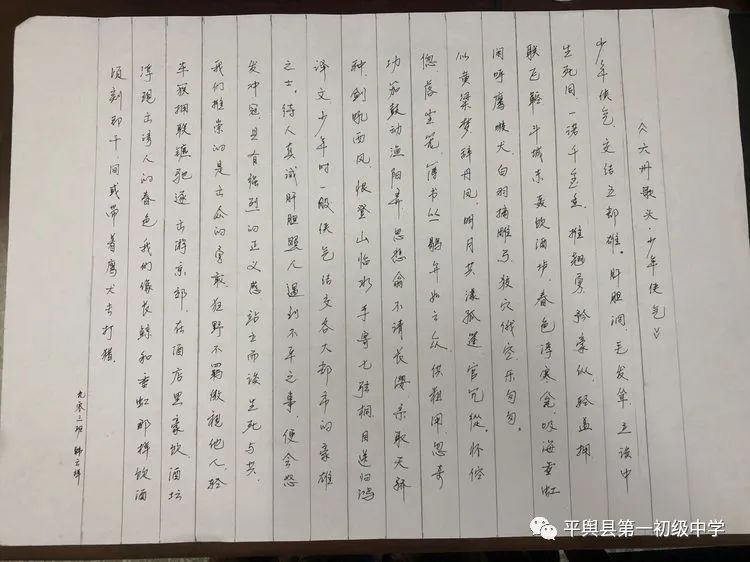 《六州歌头·少年侠气》
少年侠气,交结五都雄。肝胆洞,毛发耸,立谈中
生死同,一诺千金重,推翘勇,矜豪纵,轻盖拥
联飞鞚,斗城东,轰饮酒垆,春色浮寒瓮,吸海垂虹
闲呼鹰嗾犬,白羽摘雕弓,狡穴俄空,乐匆匆.
似黄粱梦,辞丹凤,明月共,漾孤蓬,官冗從,怀倥
偬,落尘笼,簿书丛,鹖弁如云众,供粗用,忽奇
功.笳鼓动,渔阳弄,思悲翁,不请长缨,系取天骄
种,剑吼西风,恨登山临水,手寄七弦桐,目送归鸿
译文少年时一般侠气结交各大都市的豪雄
之士。待人真诚肝胆照人遇到不平之事,便会怒
发冲冠具有强烈的正义感站立而谈生死与共.
我们推崇的是出众的勇敢狂野不羁傲视他人.轻
车簇拥联镳驰逐出游京郊.在酒店里豪饮酒坛
浮现出诱人的春色我们像长鲸和垂虹那样饮酒
顷刻即干间或带着鹰犬去打猎.
九零三班
平舆县第一初级中学